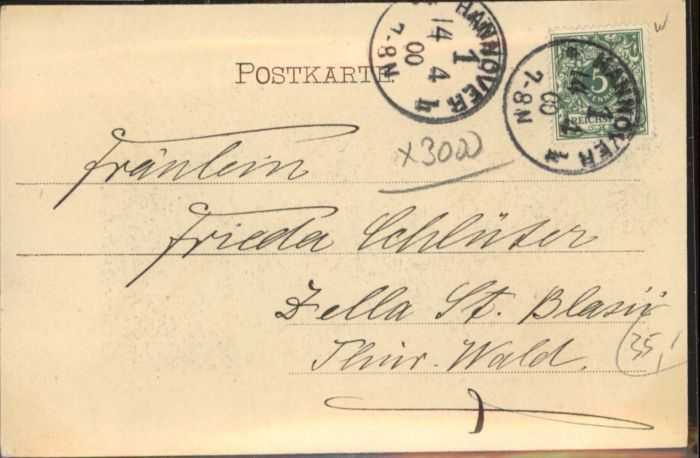 POSTKARTE
HANNOVER
1
14 4
00
7-8N
HANNOVER
1
14 4
00
7-8N
5
REICHS
x3000
Fräulein
Frieda Schlüter
Zella St. Blasii
Thür. Wald.
35,-